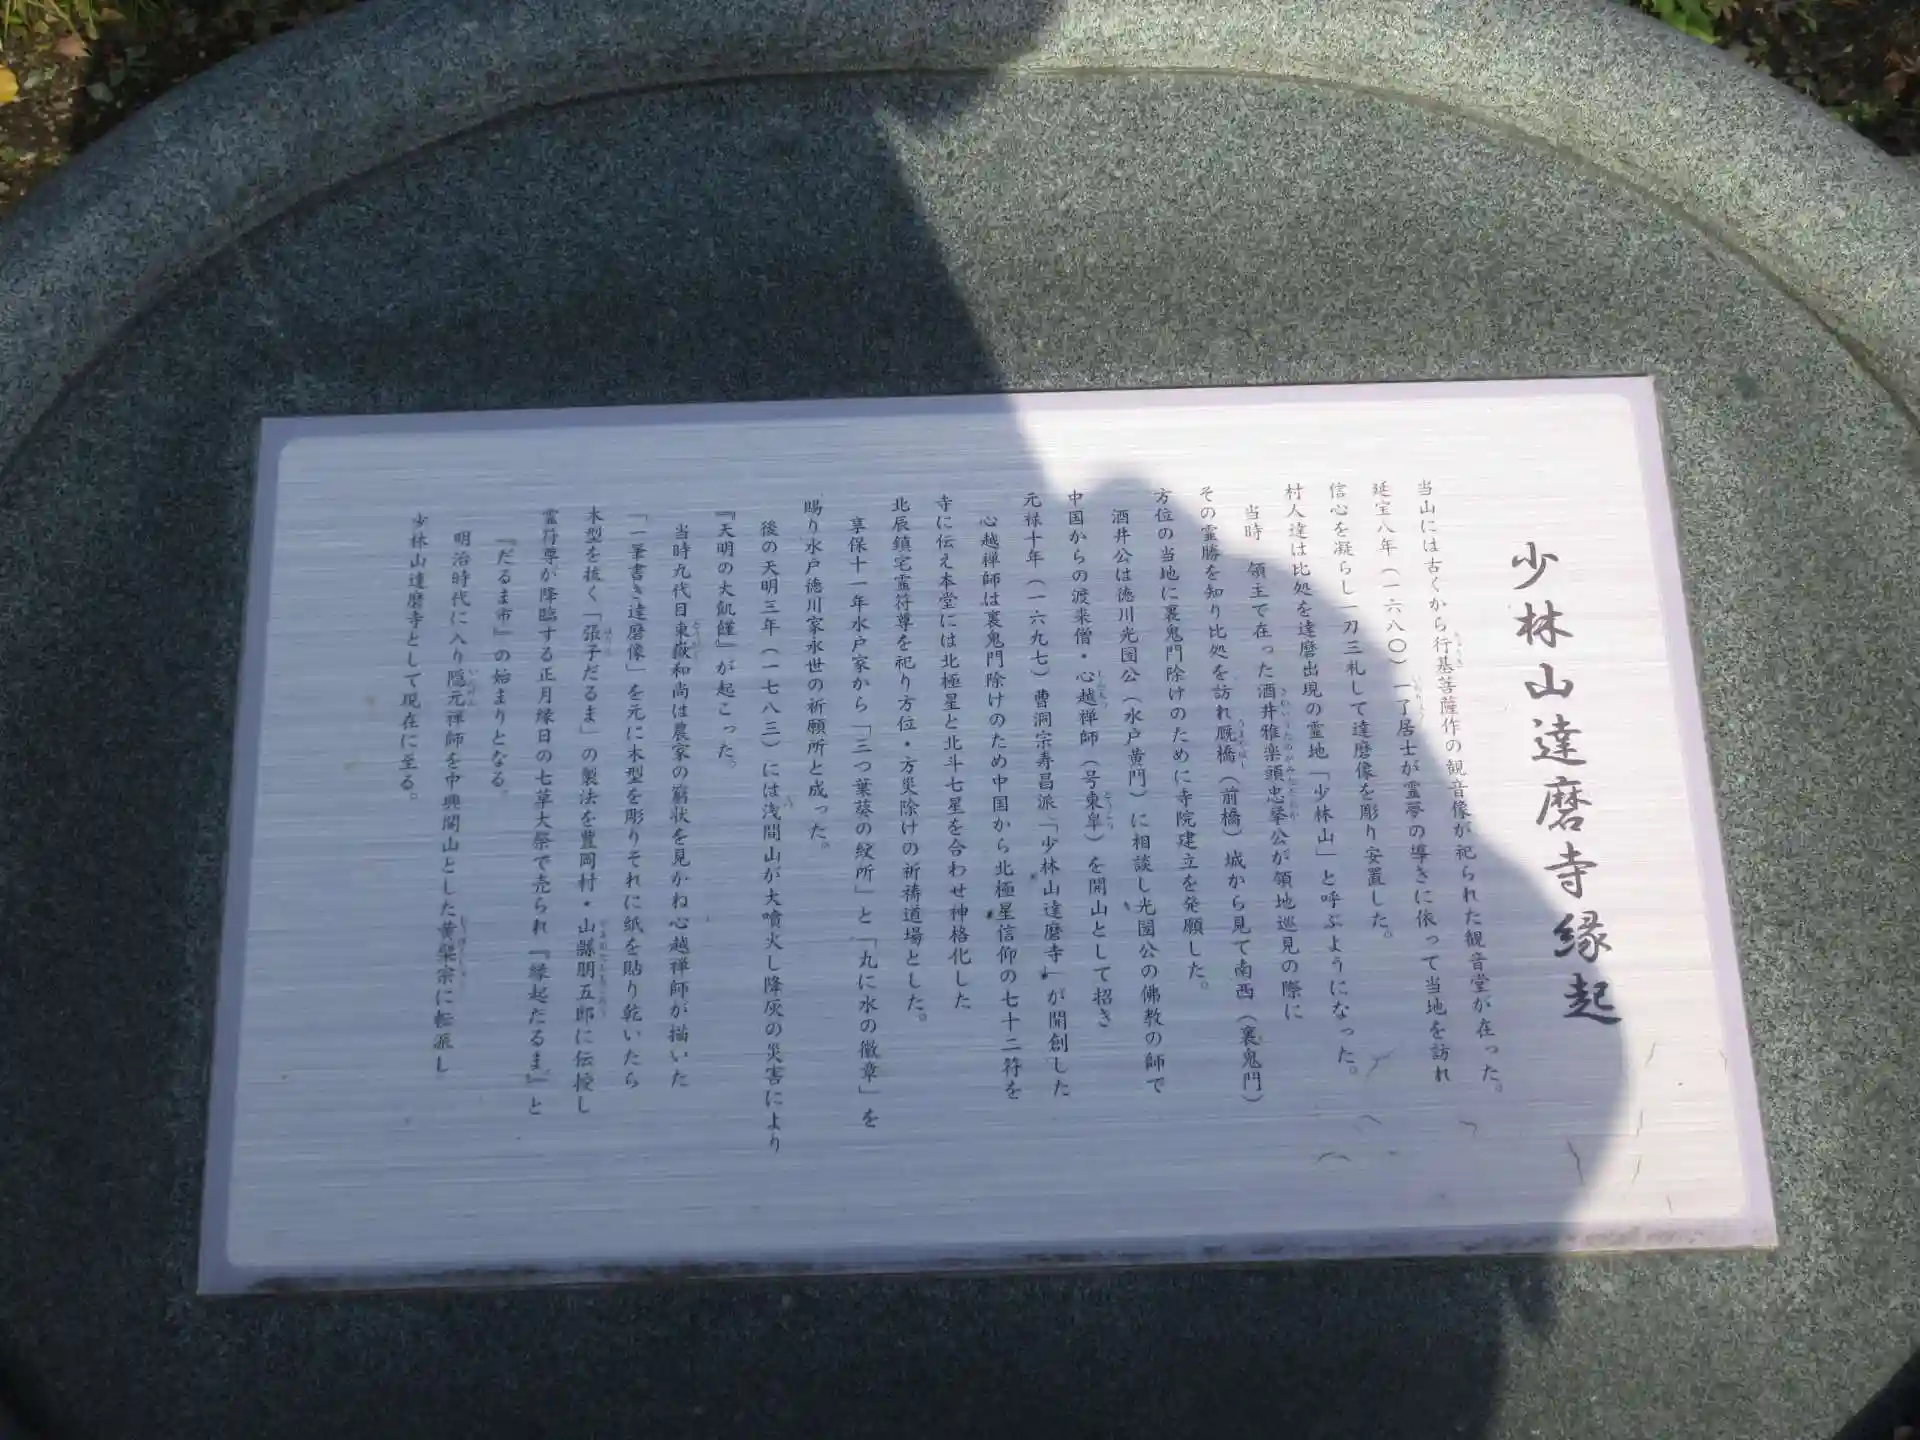 少林山達磨寺縁起
当山には古くから行基菩薩作の観音像が祀られた観音堂が在った。
延宝八年（一六八〇）一了居士が霊夢の導きに依って当地を訪れ
信心を凝らし一刀三礼して達磨像を彫り安置した。
村人達は比処を達磨出現の霊地「少林山」と呼ぶようになった。
当時　領主で在った酒井雅楽頭忠挙公が領地巡見の際に
その霊勝を知り比処を訪れ厩橋（前橋）城から見て南西（裏鬼門）
方位の当地に裏鬼門除けのために寺院建立を発願した。
酒井公は徳川光圀公（水戸黄門）に相談し光圀公の佛教の師で
中国からの渡来僧・心越禅師（号東皐）を開山として招き
元禄十年（一六九七）曹洞宗寿昌派「少林山達磨寺」が開創した
心越禅師は裏鬼門除けのため中国から北極星信仰の七十二符を
寺に伝え本堂には北極星と北斗七星を合わせ神格化した
北辰鎮宅霊符尊を祀り方位・方災除けの祈祷道場とした。
享保十一年水戸家から「三つ葉葵の紋所」と「丸に水の徽章」を
賜り水戸徳川家永世の祈願所と成った。
後の天明三年（一七八三）には浅間山が大噴火し降灰の災害により
『天明の大飢饉』が起こった。
当時九代目東嶽和尚は農家の窮状を見かね心越禅師が描いた
「一筆書き達磨像」を元に木型を彫りそれに紙を貼り乾いたら
木型を抜く「張子だるま」の製法を豊岡村・山縣朋五郎に伝授し
霊符尊が降臨する正月縁日の七草大祭で売られ『縁起だるま』と
『だるま市』の始まりとなる。
明治時代に入り隠元禅師を中興開山とした黄檗宗に転派し
少林山達磨寺として現在に至る。